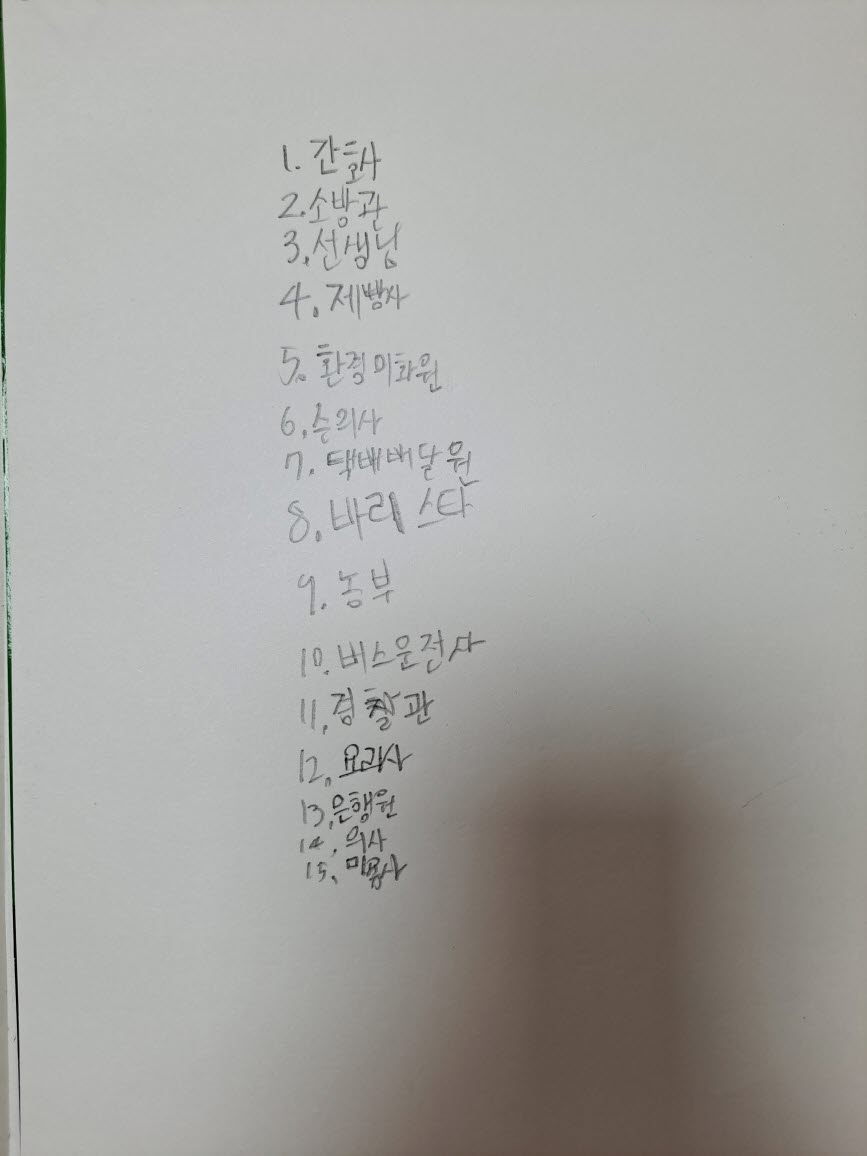 1. 간호사
2. 소방관
3. 선생님
4. 제빵사
5. 환경미화원
6. 수의사
7. 택배배달원
8. 바리스타
9. 농부
10. 버스운전사
11. 경찰관
12. 요리사
13. 은행원
14. 의사
15. 미용사